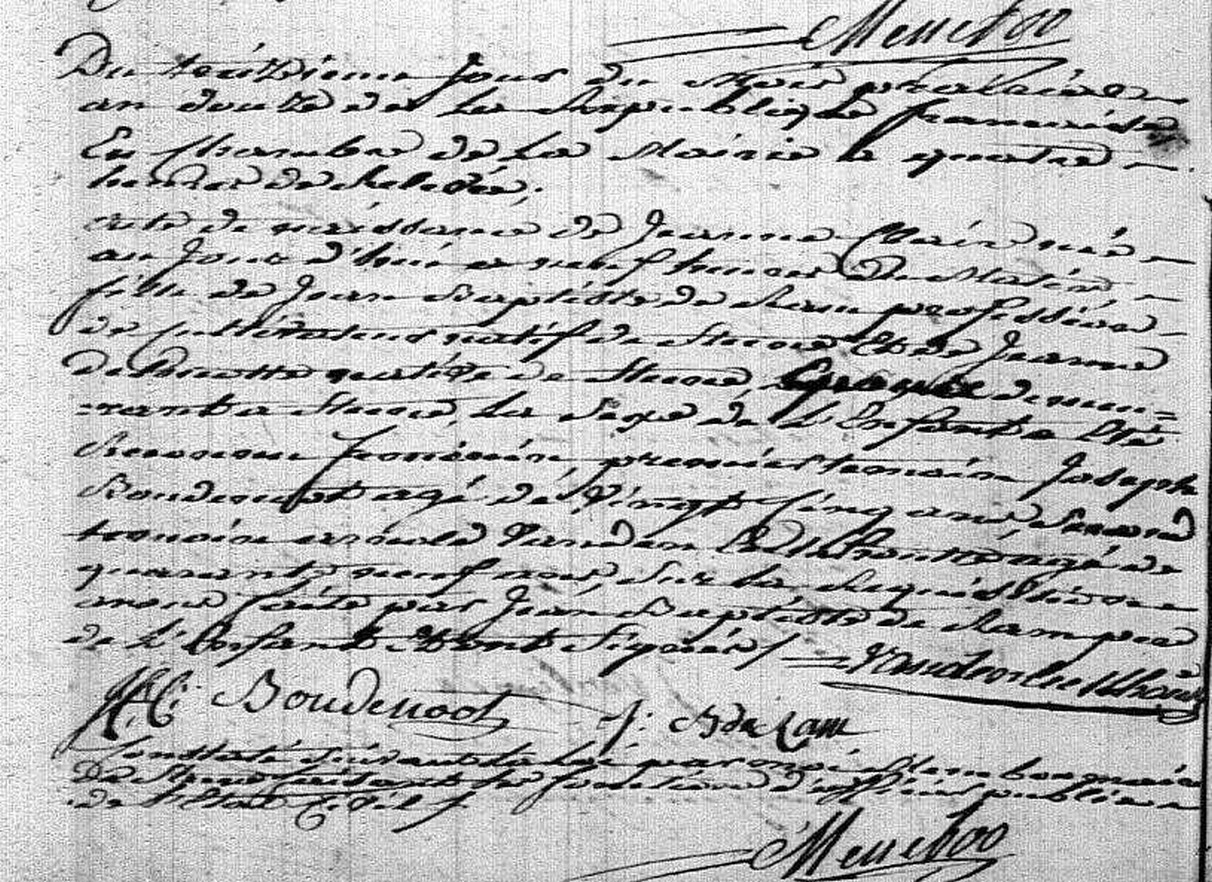 Meneboo
Du treizieme jour du mois prairial
an douze de la Republique francaise
En chambre de la Mairie a quatre
heures de Relevée,
acte de naissance de Jeanne Claire née
au jour d'hui a neuf heures Du Matin
fille de Jean Baptiste de Lam profession
de cultivateur natif de Steene Et de Jeanne
de native de Steene, demeu=
=rant a Steene, Le Sexe de L'Enfant a Eté
Reconnu feminin, premier temoin Joseph
Boudenoot agé de Vingt Cinq ans, Second
temoin arnould Vanden agé de
quarante neuf ans, Sur La Requisition a
nous faite par Jean Baptiste de Lam pere
de L'Enfant Et ont Signés /
Boudenoot J: B de Lam
Constaté Suivant La Loi par moi maire
De Steene faisant Les fonctions d'officier public
de L'Etat Civil /
Meneboo